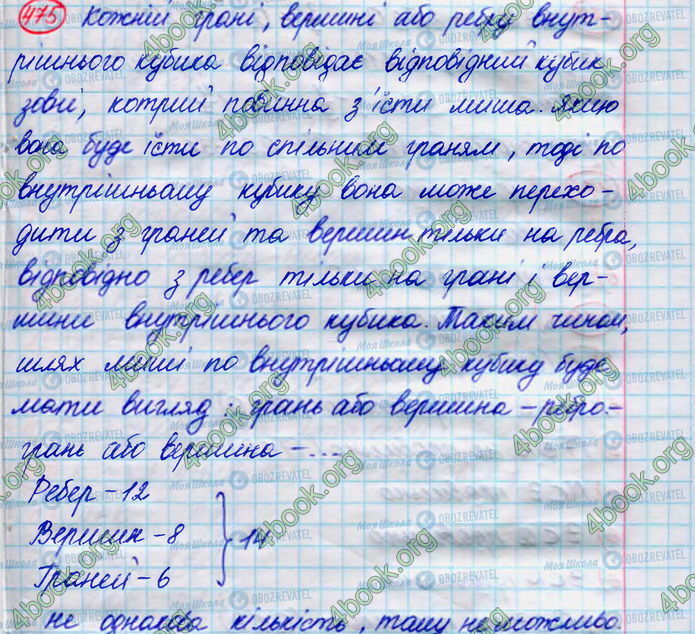 475 Кожній грані, вершині або ребру внут-
рішнього кубика відповідає відповідний кубик
зовні, котрий повинна з'їсти миша. Якщо
вона буде їсти по спільним граням, тоді по
внутрішньому кубику вона може перехо-
дити з граней та вершин тільки на ребра,
відповідно з ребер тільки на грані і вер-
шини внутрішнього кубика. Таким чином,
шлях миші по внутрішньому кубику буде
мати вигляд: грань або вершина – ребро –
грань або вершина – ...
Ребер – 12
Вершин – 8 } 14
Граней – 6
не однакова кількість, тому неможливо
4book.org
Моя Школа
OBOZREVATEL